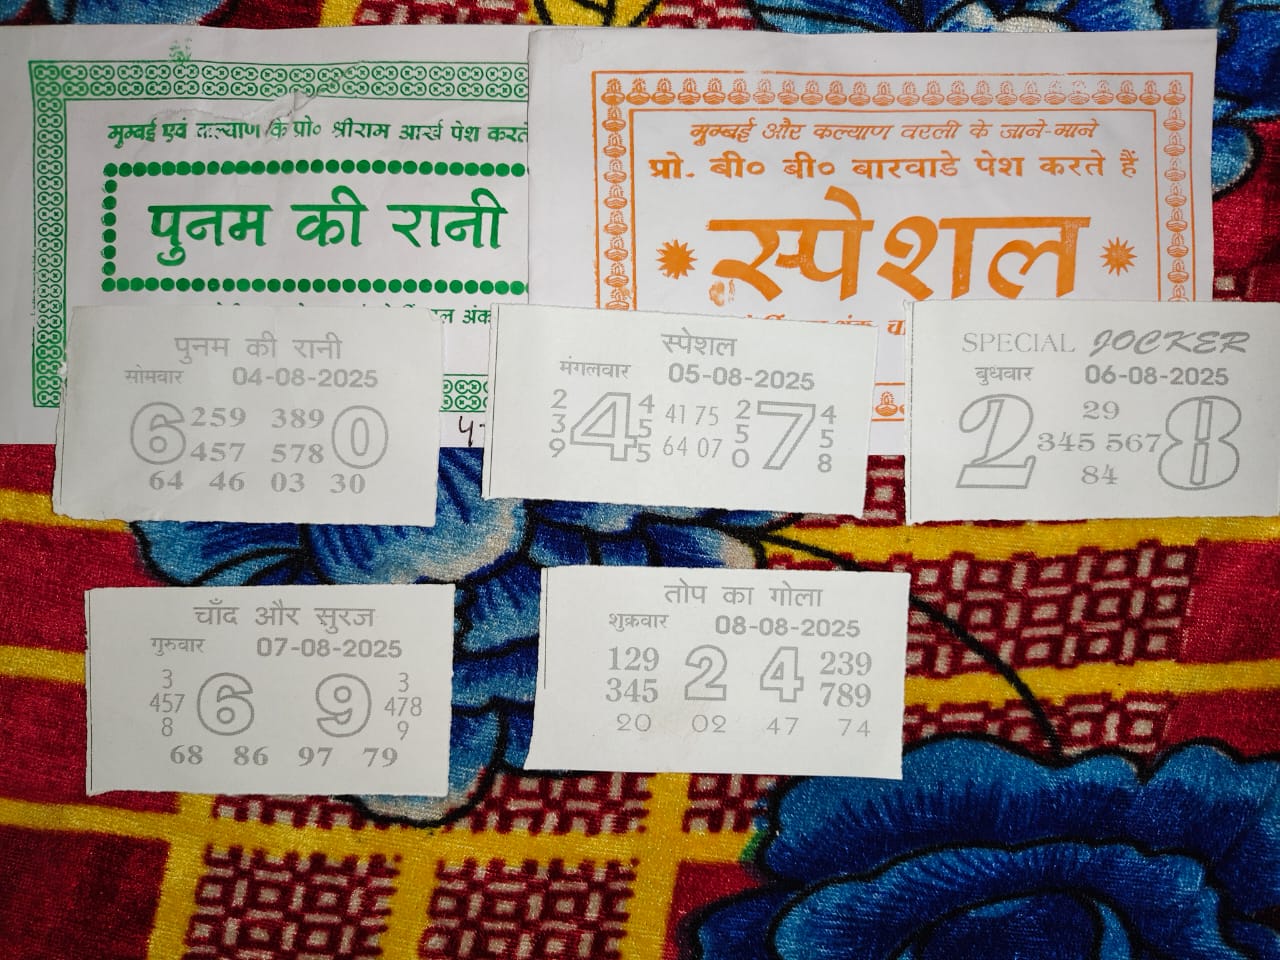 मुम्बई एवं कल्याण के प्रो० श्रीराम आर्ख पेश करते
पुनम की रानी
मुम्बई और कल्याण वरली के जाने-माने
प्रो. बी० बी० बारवाडे पेश करते हैं
स्पेशल
पुनम की रानी
सोमवार 04-08-2025
6 259 389 0
457 578
64 46 03 30
स्पेशल
मंगलवार 05-08-2025
2 4 4 41 75 2 7 4
3 5 5 5
9 5 64 07 0 8
SPECIAL JOCKER
बुधवार 06-08-2025
29
2 345 567 8
84
चाँद और सुरज
गुरुवार 07-08-2025
3 3
457 6 9 478
8 9
68 86 97 79
तोप का गोला
शुक्रवार 08-08-2025
129 2 4 239
345 789
20 02 47 74